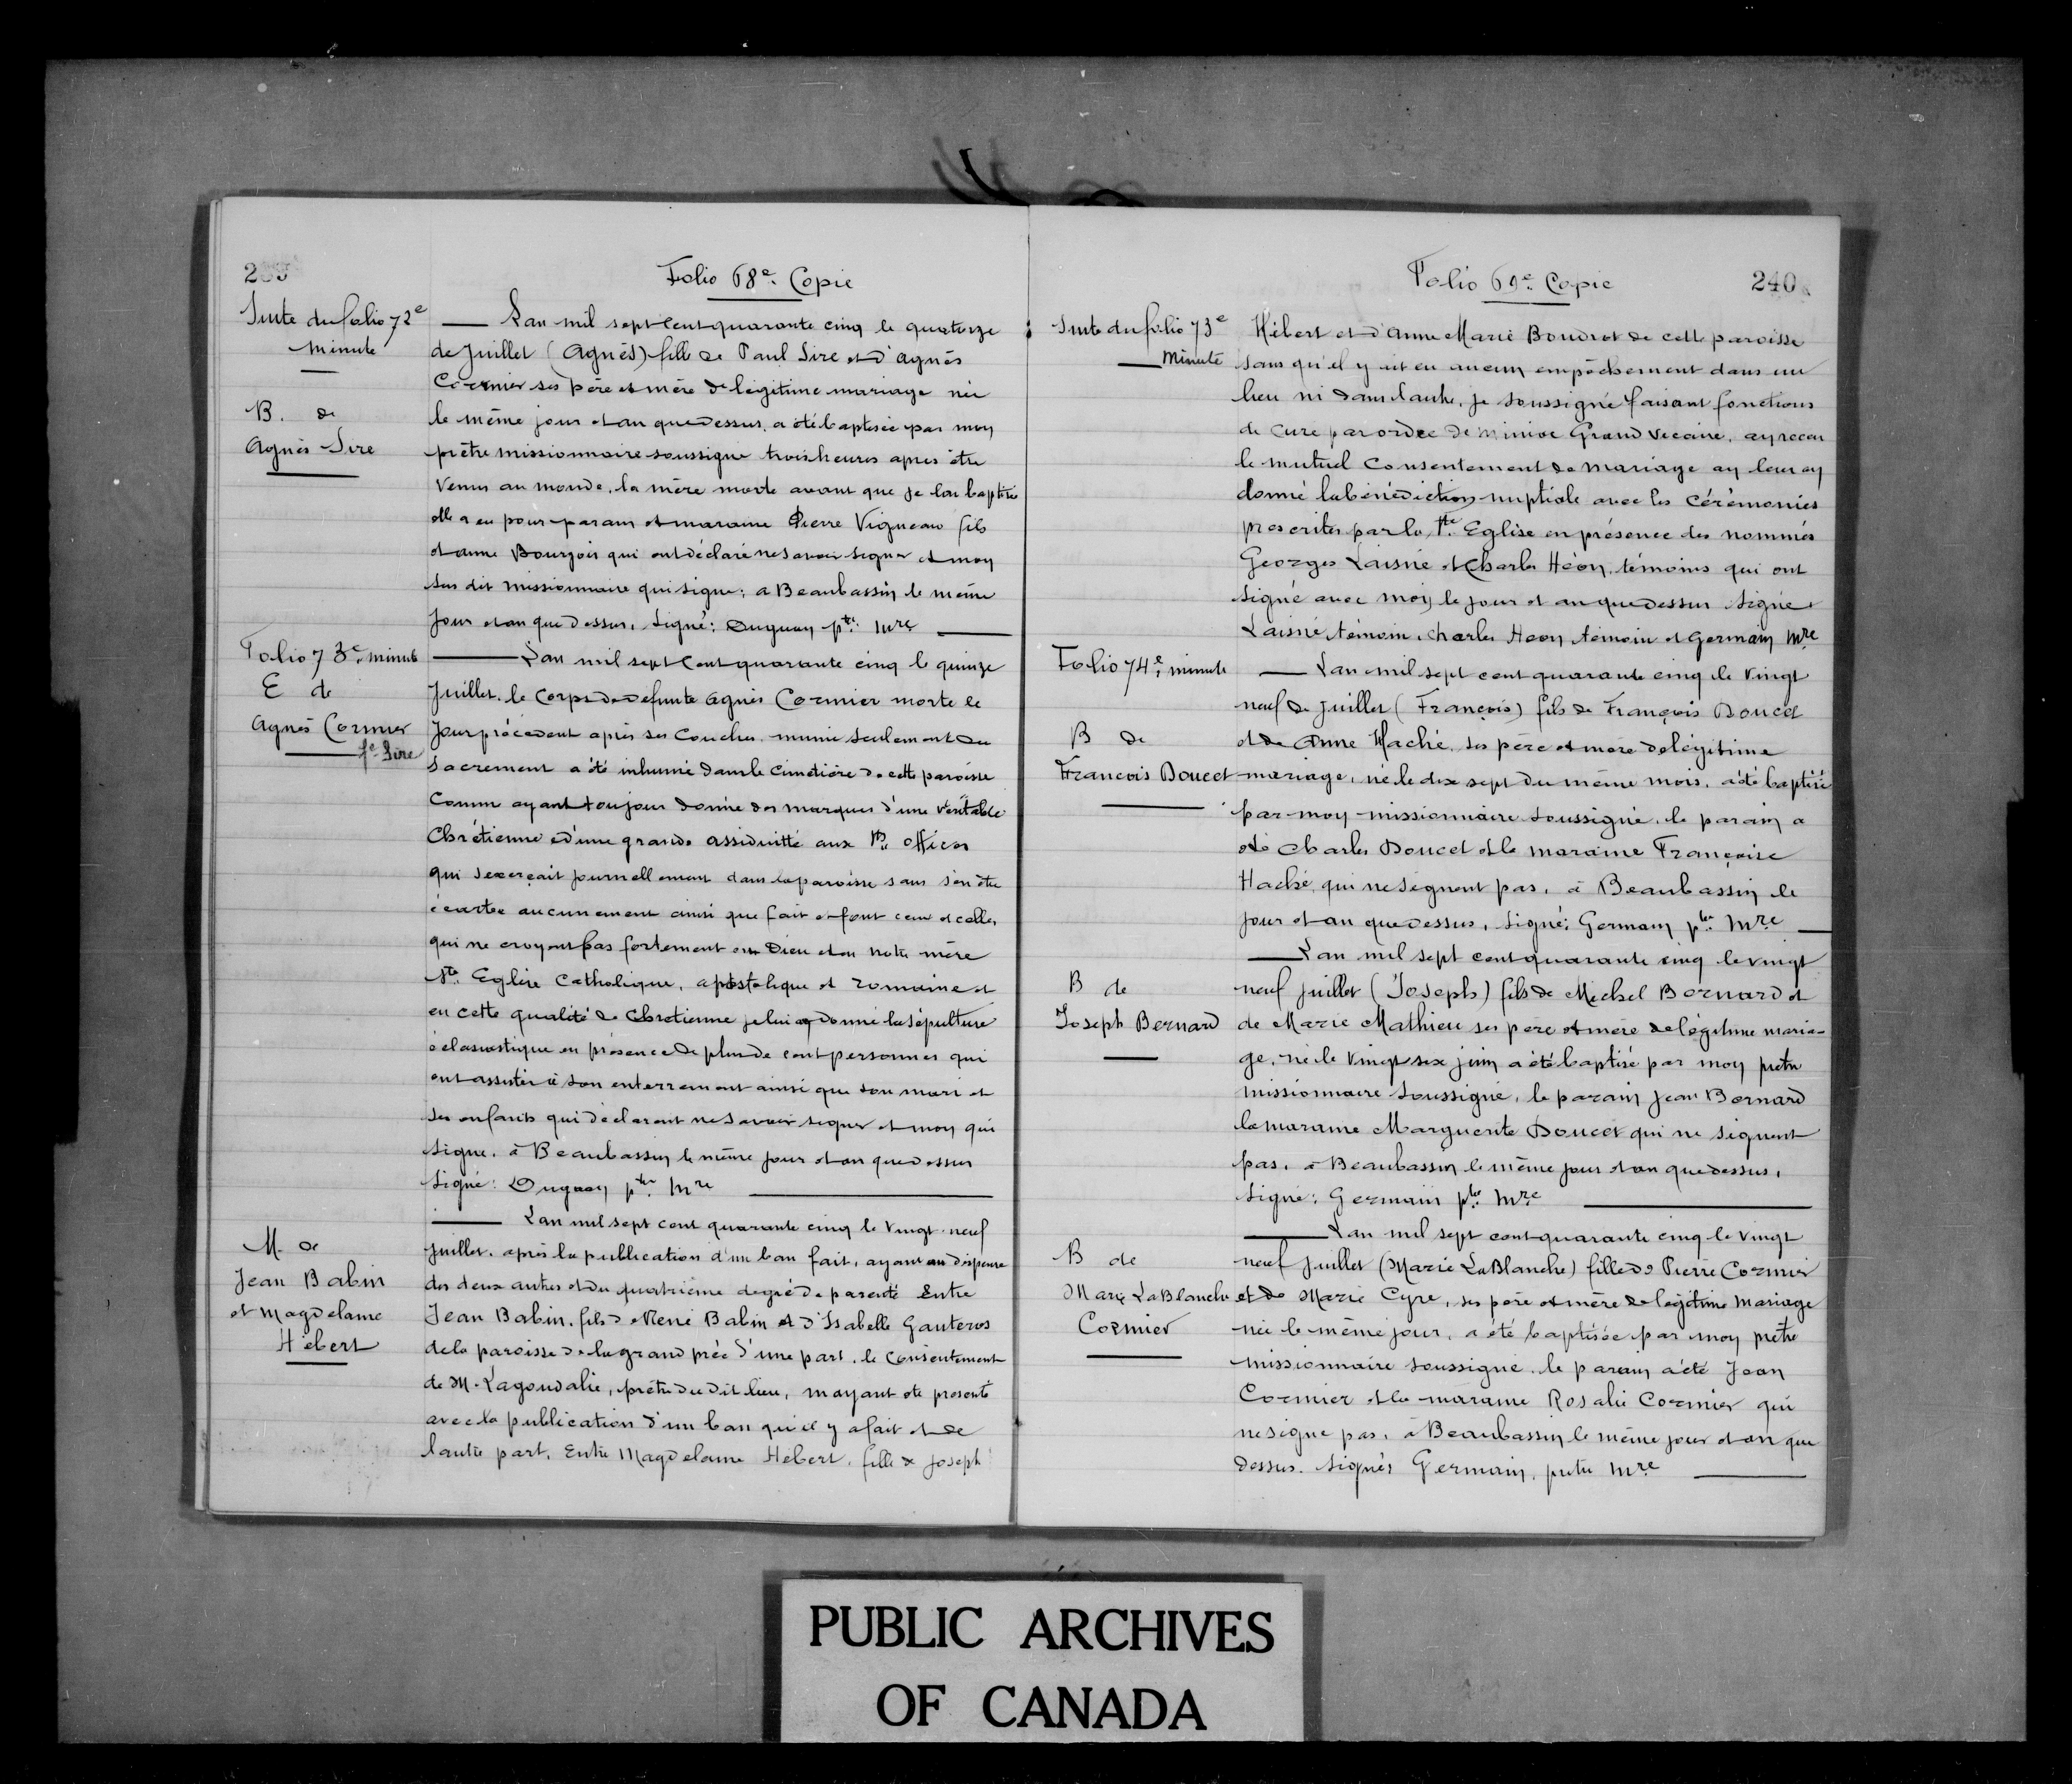 Folio 68e Copie
Suite du folio 72e
minute
B. de
Agnès Sire
Lan mil sept cent quarante cinq le quatorze
de Juillet (Agnès) fille de Paul Sire et d'agnès
Cormier ses père et mère de légitime mariage née
le même jour et an que dessus, a été baptisée par moy
prêtre missionnaire soussigné trois heures après être
venue au monde, la mère morte avant que je l'ai baptisé
elle a eu pour parain et maraine Pierre Vigneau fils
et anne Bourgois qui ont déclaré ne savoir signer et moy
sus dit missionnaire qui signe; a Beaubassin le même
Jour et an que dessus, signé: Duguay ptre. Mre
Folio 73e minute
E de
Agnès Cormier
fe Sire
Lan mil sept cent quarante cinq le quinze
Juillet, le Corps de defunte agnès Cormier morte le
Jour précédent après ses Couches, munie seulement du
Sacrement a été inhumé dans le Cimetière de cette paroisse
Comme ayant toujour donné des marques d'une véritable
Chrétienne et d'une grande assiduitté aux Sts offices
qui s'exerçait journellement dans la paroisse sans s'en être
écartée aucunement ainsi que fait et font ceux et celles,
qui ne croyent pas fortement en Dieu et en notre mère
Ste. Eglise Catholique, apostolique et romaine et
en cette qualité de Chretienne je lui ay donné la sépulture
éclasiastique en présence de plus de cent personnes qui
ont assistés à son enterrement ainsi que son mari et
ses enfants qui déclarent ne savoir signer et moy qui
signe, à Beaubassin le même jour et an que dessus
Signé: Duguay ptre. Mre
M. de
Jean Babin
et Magdelaine
Hébert
Lan mil sept cent quarante cinq le vingt-neuf
Juillet, après la publication d'un ban fait, ayant eu dispense
des deux autres et du quatrième degré de parenté Entre
Jean Babin, fils de René Babin et d'Isabelle Gauteros
de la paroisse de la grand prée d'une part, le Consentement
de M. Lagoudalie, prêtre du dit lieu, m'ayant été presenté
avec la publication d'un ban qu'il y a fait et de
lautre part, Entre Magdelaine Hébert, fille de Joseph
Folio 69e Copie 240
Suite du folio 73e
Minute
Hébert et d'Anne Marie Boudrot de cette paroisse
sans qu'il y ait eu aucun empêchement dans un
lieu ni dans l'autre, je soussigné faisant fonctions
de Curé par ordre de Grand Vicaire, ay receu
le mutuel Consentement de mariage ay leur ay
donné la bénédiction nuptiale avec les Cérémonies
prescrites par la Ste. Eglise en présence des nommés
Georges Laisné et Charles Héon, témoins qui ont
signé avec moy le jour et an que dessus Signé
Laisné témoin, Charles Heon témoin et Germain Mre
Folio 74e minute
B de
Francois Doucet
Lan mil sept cent quarante cinq le vingt
neuf de Juillet (François) fils de François Doucet
et de Anne Haché, ses père et mère de légitime
mariage, né le dix sept du même mois, a été baptisé
par moy missionnaire soussigné, le parain a
été Charles Doucet et la maraine Françoise
Haché, qui ne signent pas, à Beaubassin le
jour et an que dessus, Signé: Germain ptre Mre
B de
Joseph Bernard
Lan mil sept cent quarante cinq le vingt
neuf Juillet (Joseph) fils de Michel Bernard et
de Marie Mathieu ses père et mère de légitime maria-
ge, né le vingt six juin a été baptisé par moy pretre
missionnaire soussigné, le parain Jean Bernard
la maraine Marguerite Doucet qui ne signent
pas, à Beaubassin le même jour et an que dessus,
Signé: Germain ptre Mre
B de
Marie LaBlanche
Cormier
Lan mil sept cent quarante cinq le vingt
neuf Juillet (Marie LaBlanche) fille de Pierre Cormier
et de Marie Cyre, ses père et mère de légitime mariage
née le même jour, a été baptisée par moy prêtre
missionnaire soussigné, le parain a été Jean
Cormier et la maraine Rosalie Cormier qui
ne signe pas, à Beaubassin le même jour et an que
dessus. Signés Germain, pretre Mre
PUBLIC ARCHIVES
OF CANADA